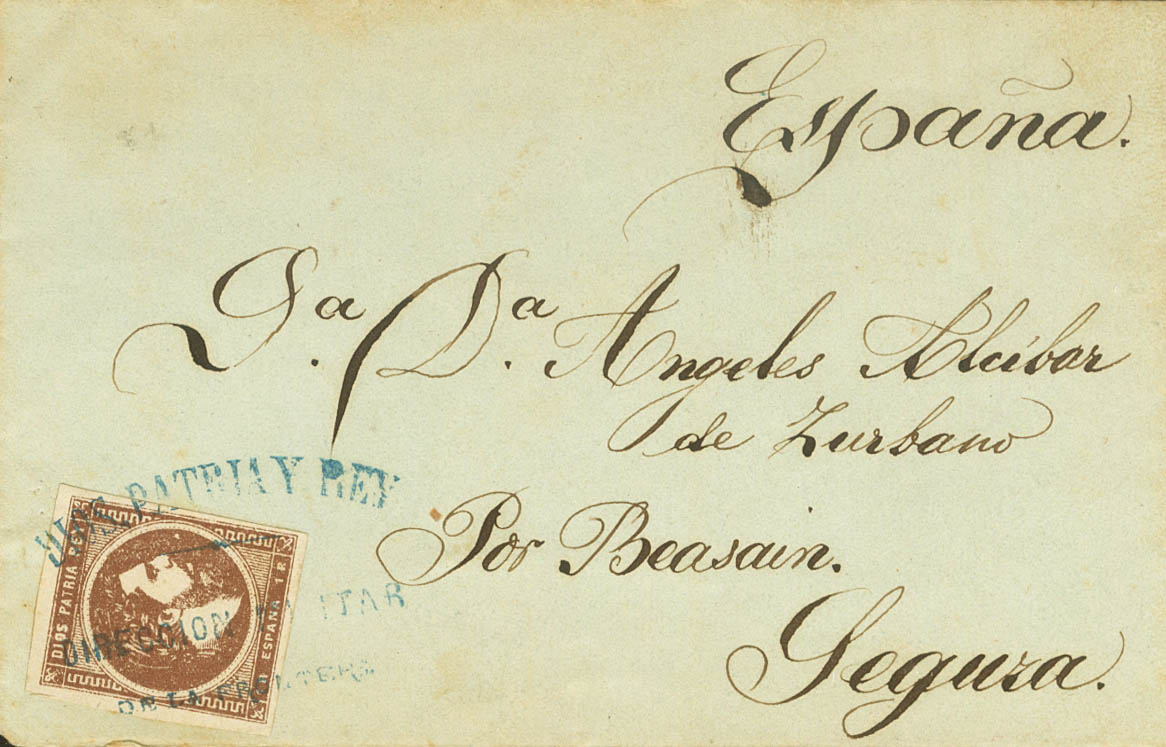 España.
Sa. Da. Angeles Alcibar
de Zurbano
Por Beasain.
Segura.
DIOS, PATRIA Y REY
DIRECCION MILITAR
DE LA FRONTERA
DIOS PATRIA REY
ESPAÑA 1 R